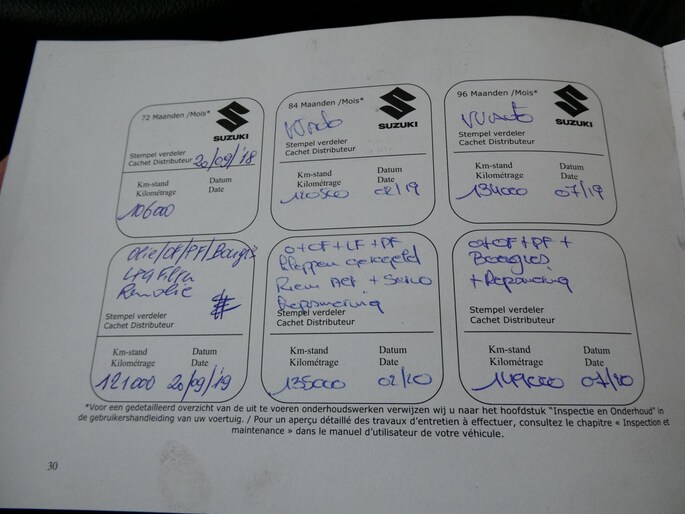 72 Maanden /Mois*
SUZUKI
Stempel verdeler
Cachet Distributeur 20/09/'18
Km-stand Datum
Kilométrage Date
106000
84 Maanden /Mois*
SUZUKI
Stempel verdeler
Cachet Distributeur
Km-stand Datum
Kilométrage Date
120500 02/19
96 Maanden /Mois*
SUZUKI
Stempel verdeler
Cachet Distributeur
Km-stand Datum
Kilométrage Date
134000 07/19
Olie/OF/PF/Bougies
LPG Filter
Remolie
Stempel verdeler
Cachet Distributeur
Km-stand Datum
Kilométrage Date
121000 20/09/'19
O+OF+LF+PF
Kleppen geregeld
Riem Act. + Servo
Stempel verdeler
Cachet Distributeur
Km-stand Datum
Kilométrage Date
135000 02/20
O+OF+PF+
Bougies
Stempel verdeler
Cachet Distributeur
Km-stand Datum
Kilométrage Date
149000 07/20
*Voor een gedetailleerd overzicht van de uit te voeren onderhoudswerken verwijzen wij u naar het hoofdstuk "Inspectie en Onderhoud" in
de gebruikershandleiding van uw voertuig. / Pour un aperçu détaillé des travaux d'entretien à effectuer, consultez le chapitre « Inspection et
maintenance » dans le manuel d'utilisateur de votre véhicule.
30